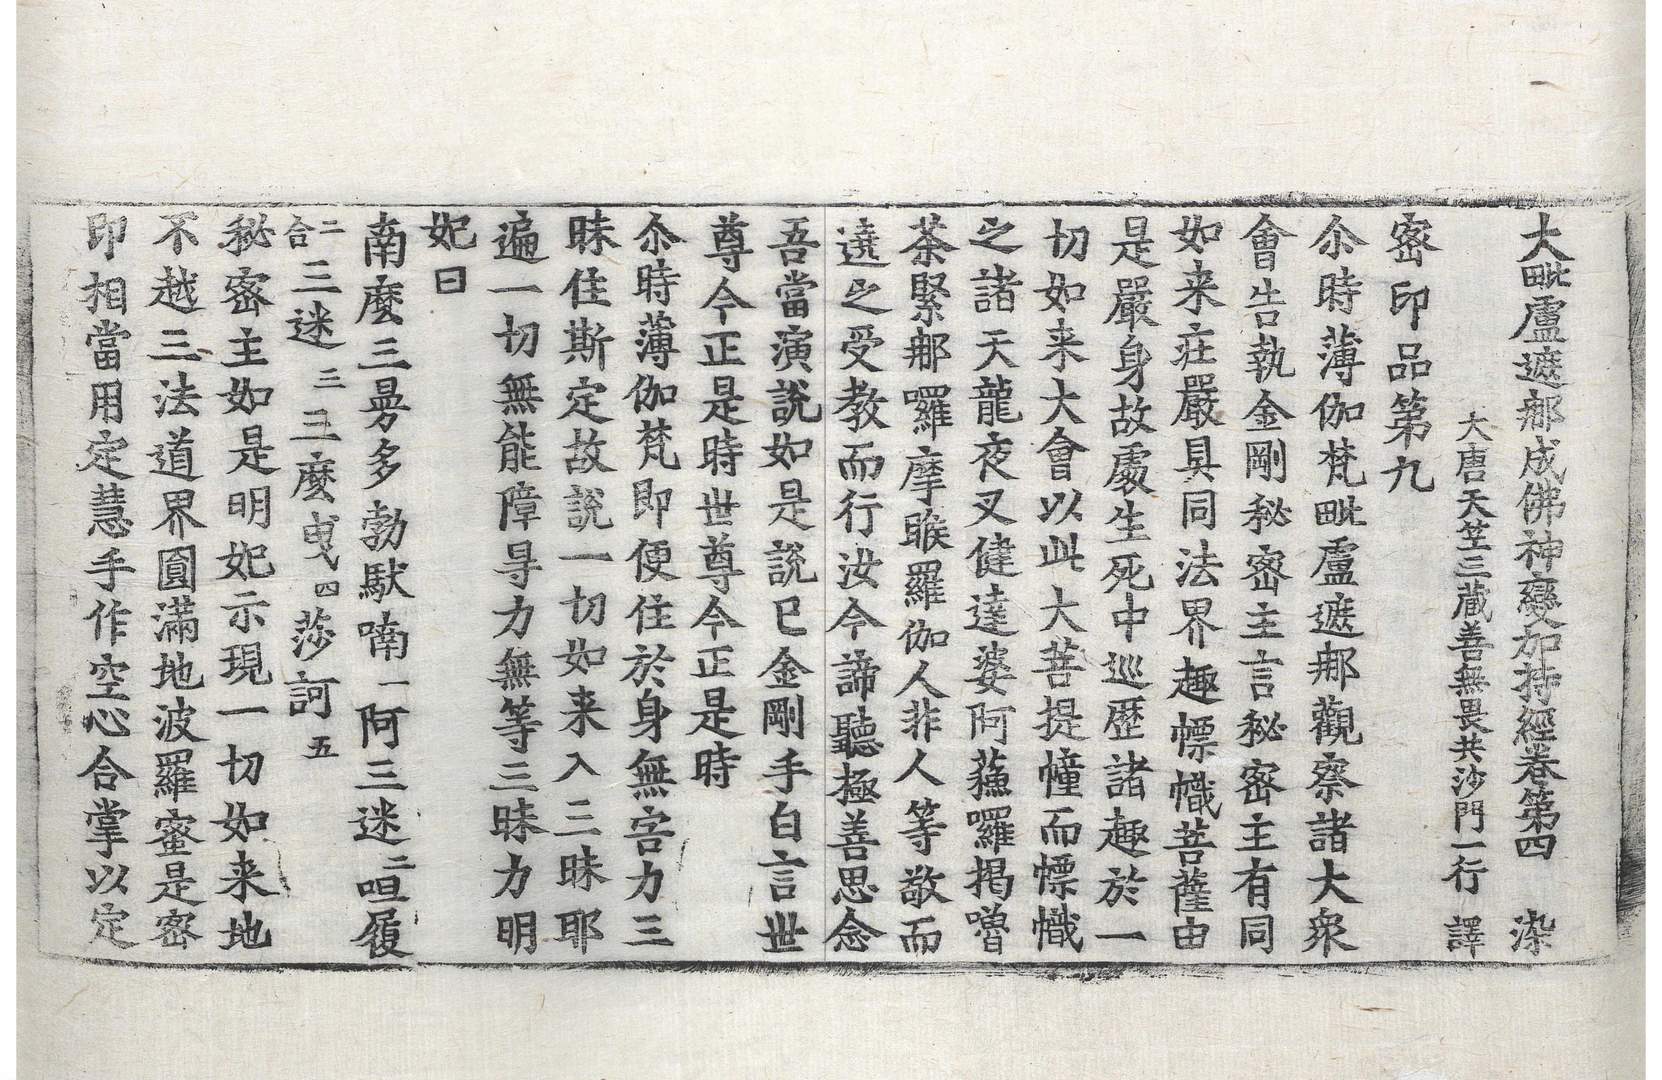 大毗盧遮那成佛神變加持經卷第四 染
大唐天笠三藏善無畏共沙門一行 譯
密印品第九
尒時薄伽梵毗盧遮那觀察諸大衆
會告執金剛秘密主言秘密主有同
如来莊嚴具同法界趣幖幟菩薩由
是嚴身故處生死中巡歷諸趣於一
切如来大會以此大菩提幢而幖幟
之諸天龍夜叉健達婆阿蘓囉揭嚕
茶緊那囉摩睺羅伽人非人等敬而
遶之受教而行汝今諦聽極善思念
吾當演說如是說已金剛手白言世
尊今正是時世尊今正是時
尒時薄伽梵即便住於身無害力三
昧住斯定故說一切如来入三昧耶
遍一切無能障㝵力無等三昧力明
妃曰
南麼三曼多勃馱喃一阿三迷二呾履
二合三迷三三麼曳四莎訶五
秘密主如是明妃示現一切如来地
不越三法道界圓滿地波羅蜜是密
印相當用定慧手作空心合掌以定